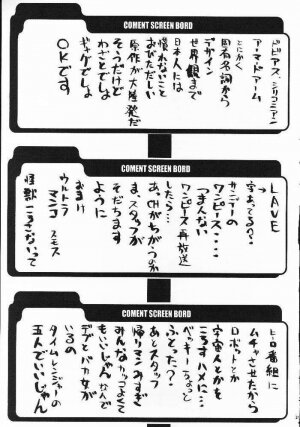 COMENT SCREEN BORD
ビビアス、シリコニアン
アーマードアーム
とにかく
固有名詞から
デザイン
世界観まで
日本人には
慣れないこと
おびただしい
原作が大爆発だ
そうだけど
わざとでしょ
ギャグでしょ
OKです
COMENT SCREEN BORD
LAVE
→字あってる??
サンデーの
ワンピース・・・・
つまんない
ワンピース再放送
したら・・・
あっCHがちがうのか
ま、スタッフが
そだちます
ように
おまけ
ウルトラ
マンコスモス
怪獣ころさないって
COMENT SCREEN BORD
ヒーロー番組に
ムチャさせたから
ロボットとか
宇宙人とかを
ころすハメに・・・
ベッキーちょっと
ふとった?
あとスタッフ
帰りマンみすぎ
みんなカッコよくて
もいいじゃんなんで
デブとバカ女が
いるの
タイムレンジャーの
五人でいいじゃん